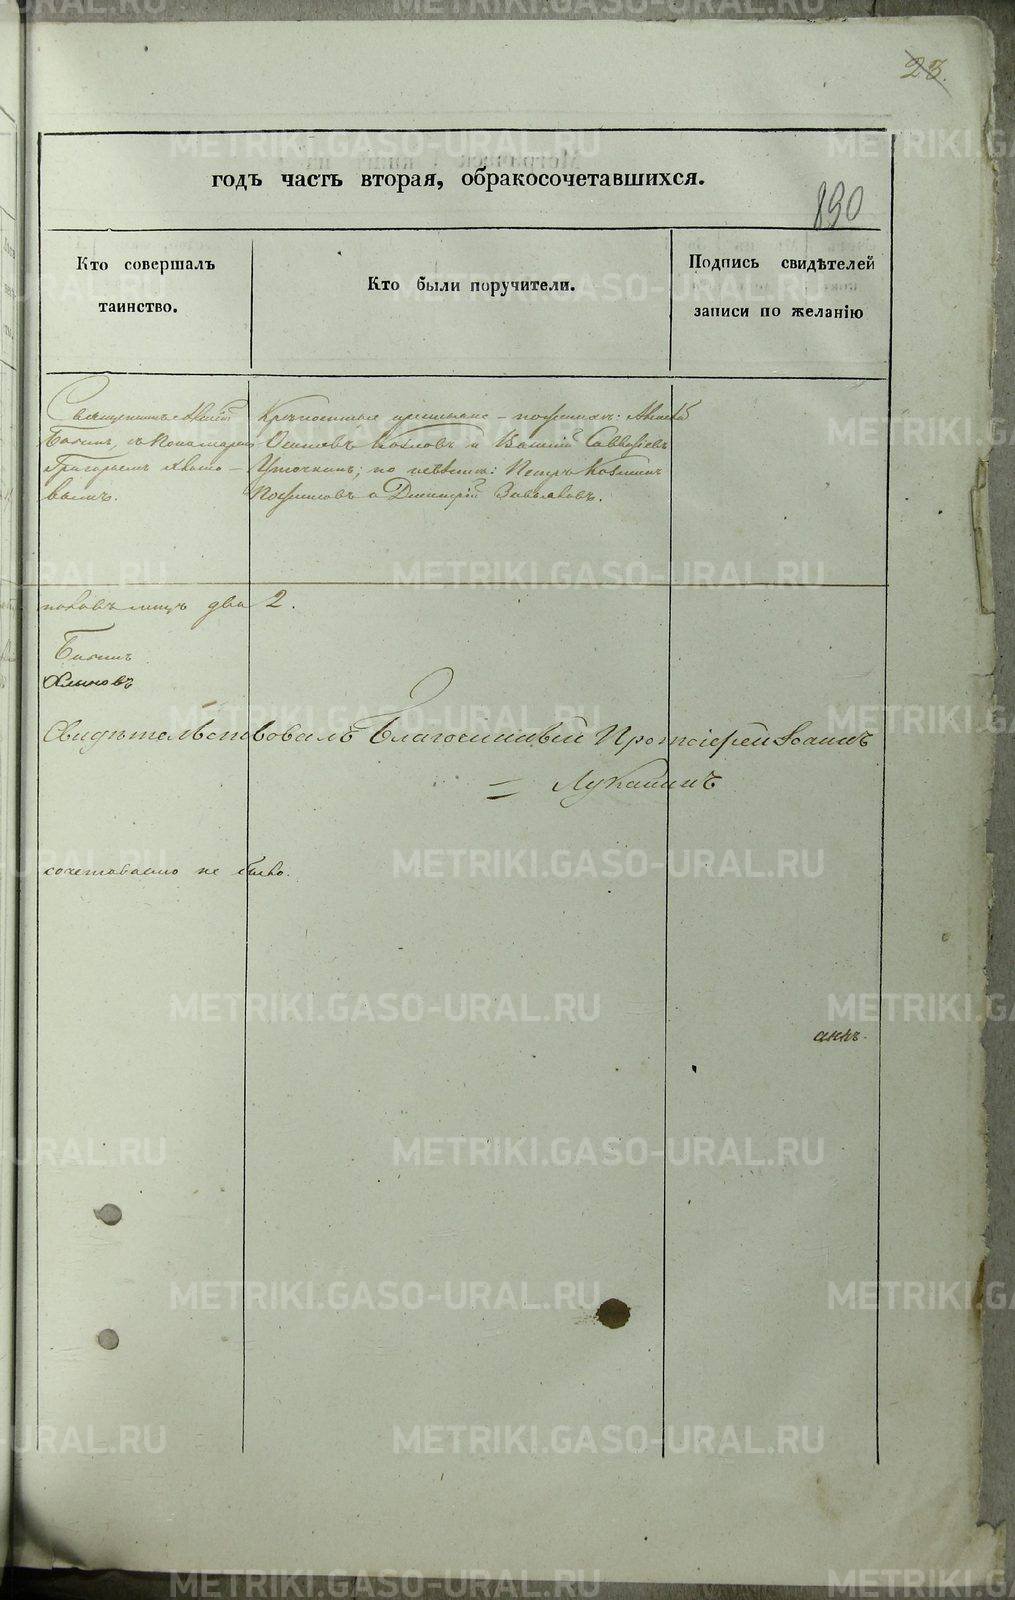 23.
годъ часть вторая, обракосочетавшихся.
190
Кто совершалъ
таинство.
Кто были поручители.
Подпись свидѣтелей
записи по желанію
Священникъ
съ Пономаремъ
Григорьемъ
Крѣпостные крестьяне - по женихѣ: Алексѣй
Осиповъ Козловъ и Василій Савватѣевъ
Уточкинъ; по невѣстѣ: Петръ Козминъ
и Димитрій Завьяловъ.
лицъ два 2.
Свидѣтельствовалъ Благочинный Протоіерей Іоаннъ
Луканинъ
сочетавано не было.
METRIKI.GASO-URAL.RU